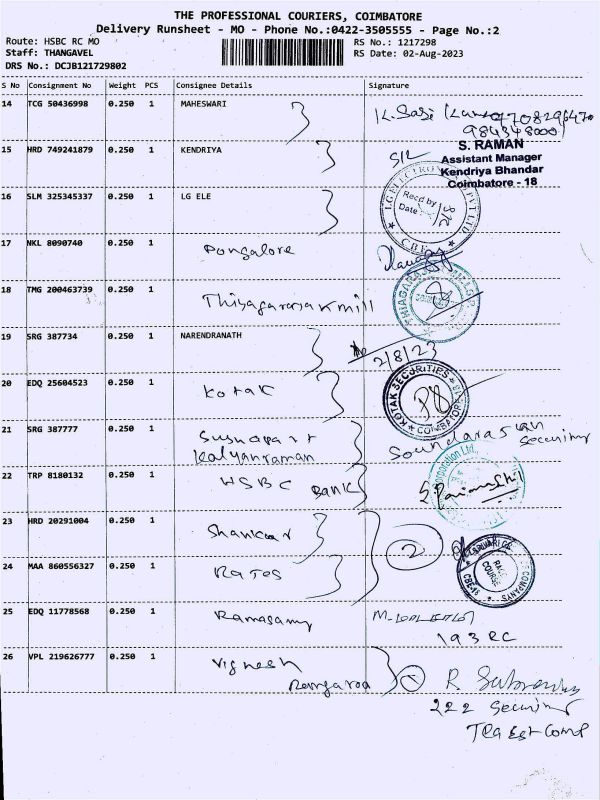 THE PROFESSIONAL COURIERS, COIMBATORE
Delivery Runsheet - MO - Phone No.:0422-3505555 - Page No.:2
Route: HSBC RC MO
Staff: THANGAVEL
DRS No.: DCJB121729802
RS No.: 1217298
RS Date: 02-Aug-2023
S No Consignment No Weight PCS Consignee Details Signature
14 TCG 50436998 0.250 1 MAHESWARI
15 HRD 749241879 0.250 1 KENDRIYA
S. RAMAN
Assistant Manager
Kendriya Bhandar
Coimbatore - 18
16 SLM 325345337 0.250 1 LG ELE
Recd by
Date
17 NKL 8090740 0.250 1 Pongalore
18 TMG 200463739 0.250 1 Thiyagaraja k mill
19 SRG 387734 0.250 1 NARENDRANATH
2/8/23
20 EDQ 25604523 0.250 1 Kotak
KOTAK SECURITIES
COIMBATORE
21 SRG 387777 0.250 1
Kalyanraman
22 TRP 8180132 0.250 1 HSBC Bank
23 HRD 20291004 0.250 1 Shankar
2
24 MAA 860556327 0.250 1
RACE COURSE
25 EDQ 11778568 0.250 1 Ramasamy
193 RC
26 VPL 219626777 0.250 1 Vignesh
R.
222